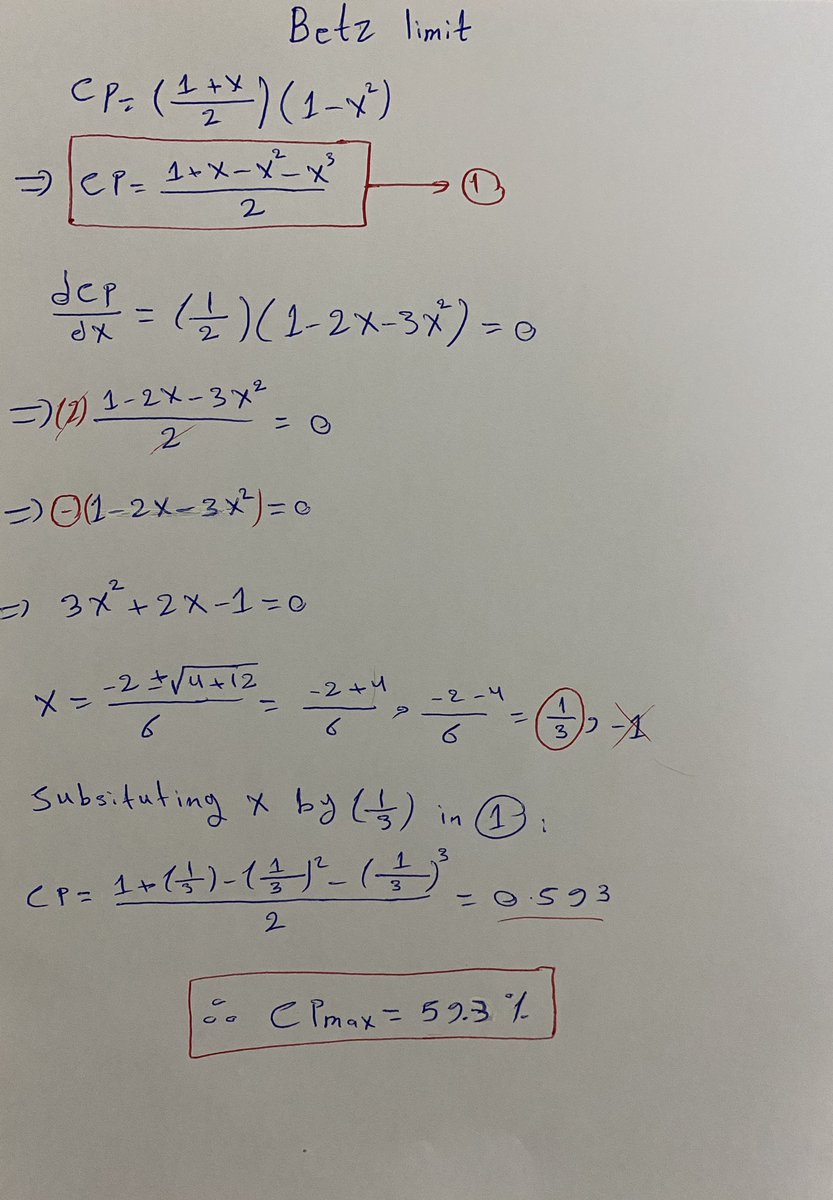 Betz limit
CP = (\frac{1+x}{2})(1-x²)
⇒ CP = \frac{1+x-x²-x³}{2} → ①
\frac{dCP}{dx} = (\frac{1}{2})(1-2x-3x²) = 0
⇒ (2) \frac{1-2x-3x²}{2} = 0
⇒ -(1-2x-3x²) = 0
⇒ 3x²+2x-1 = 0
x = \frac{-2±√4+12}{6} = \frac{-2+4}{6}, \frac{-2-4}{6} = \frac{1}{3}, -1
Subsituting x by (\frac{1}{3}) in ①:
CP = \frac{1+(\frac{1}{3})-(\frac{1}{3})²-(\frac{1}{3})³}{2} = 0.593
∴ CPmax = 59.3 %